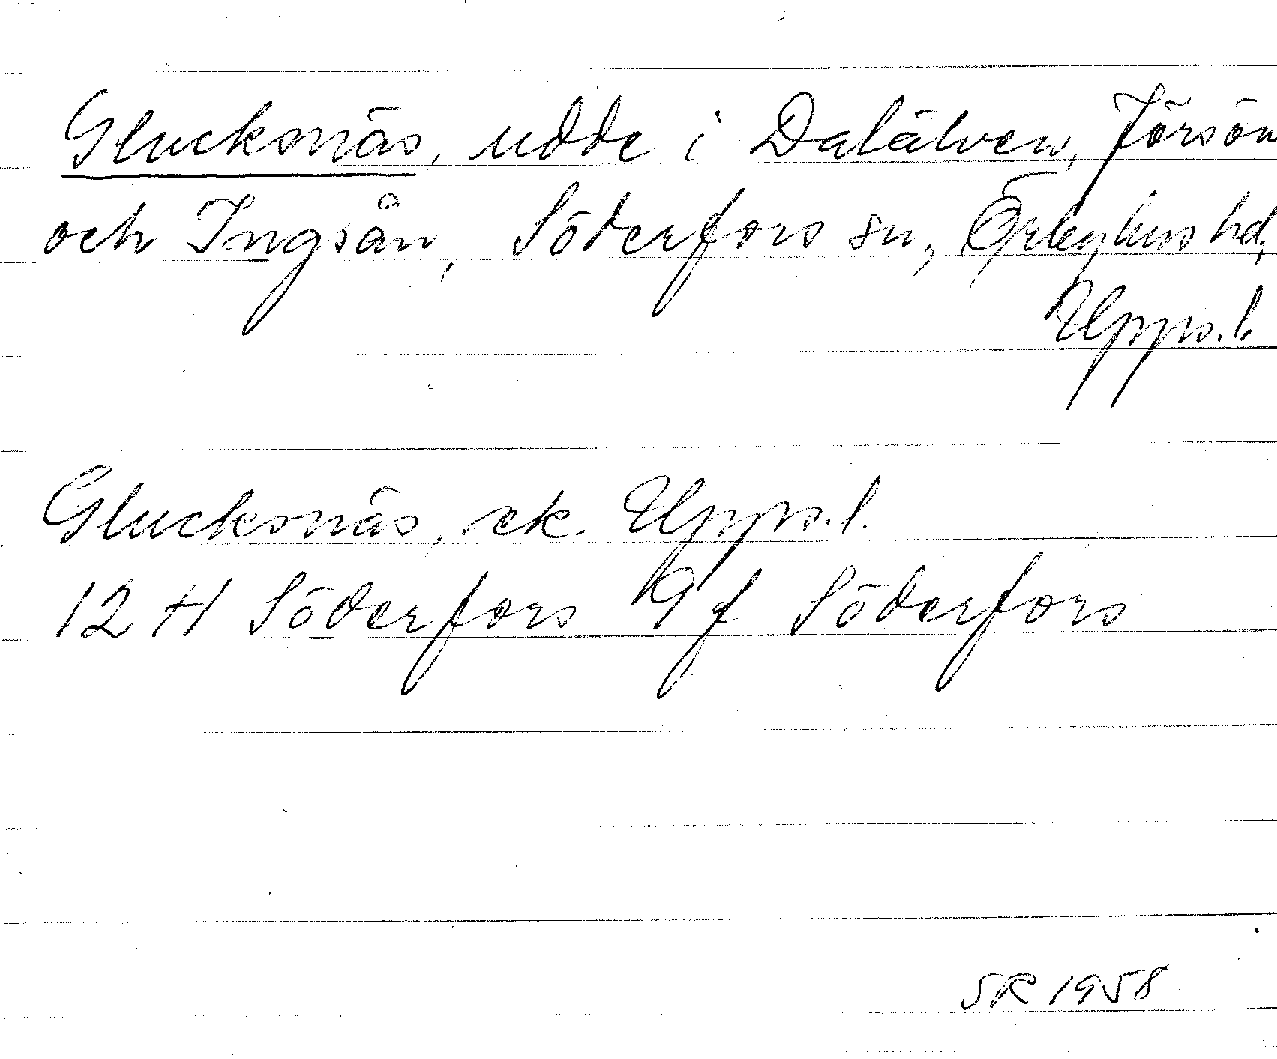 Glucksnäs, udde i Dalälven, Försön
och Ingsån, Söderfors sn, Örbyhus hd,
Upps.l.
Glucksnäs, ek. Upps.l.
12 H Söderfors 9f Söderfors
SR 1958